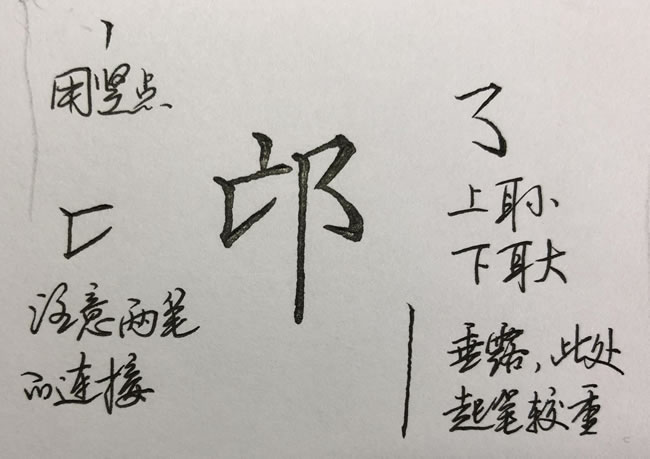 用竖点
注意两笔
的连接
邙
上耳小
下耳大
垂露，此处
起笔较重